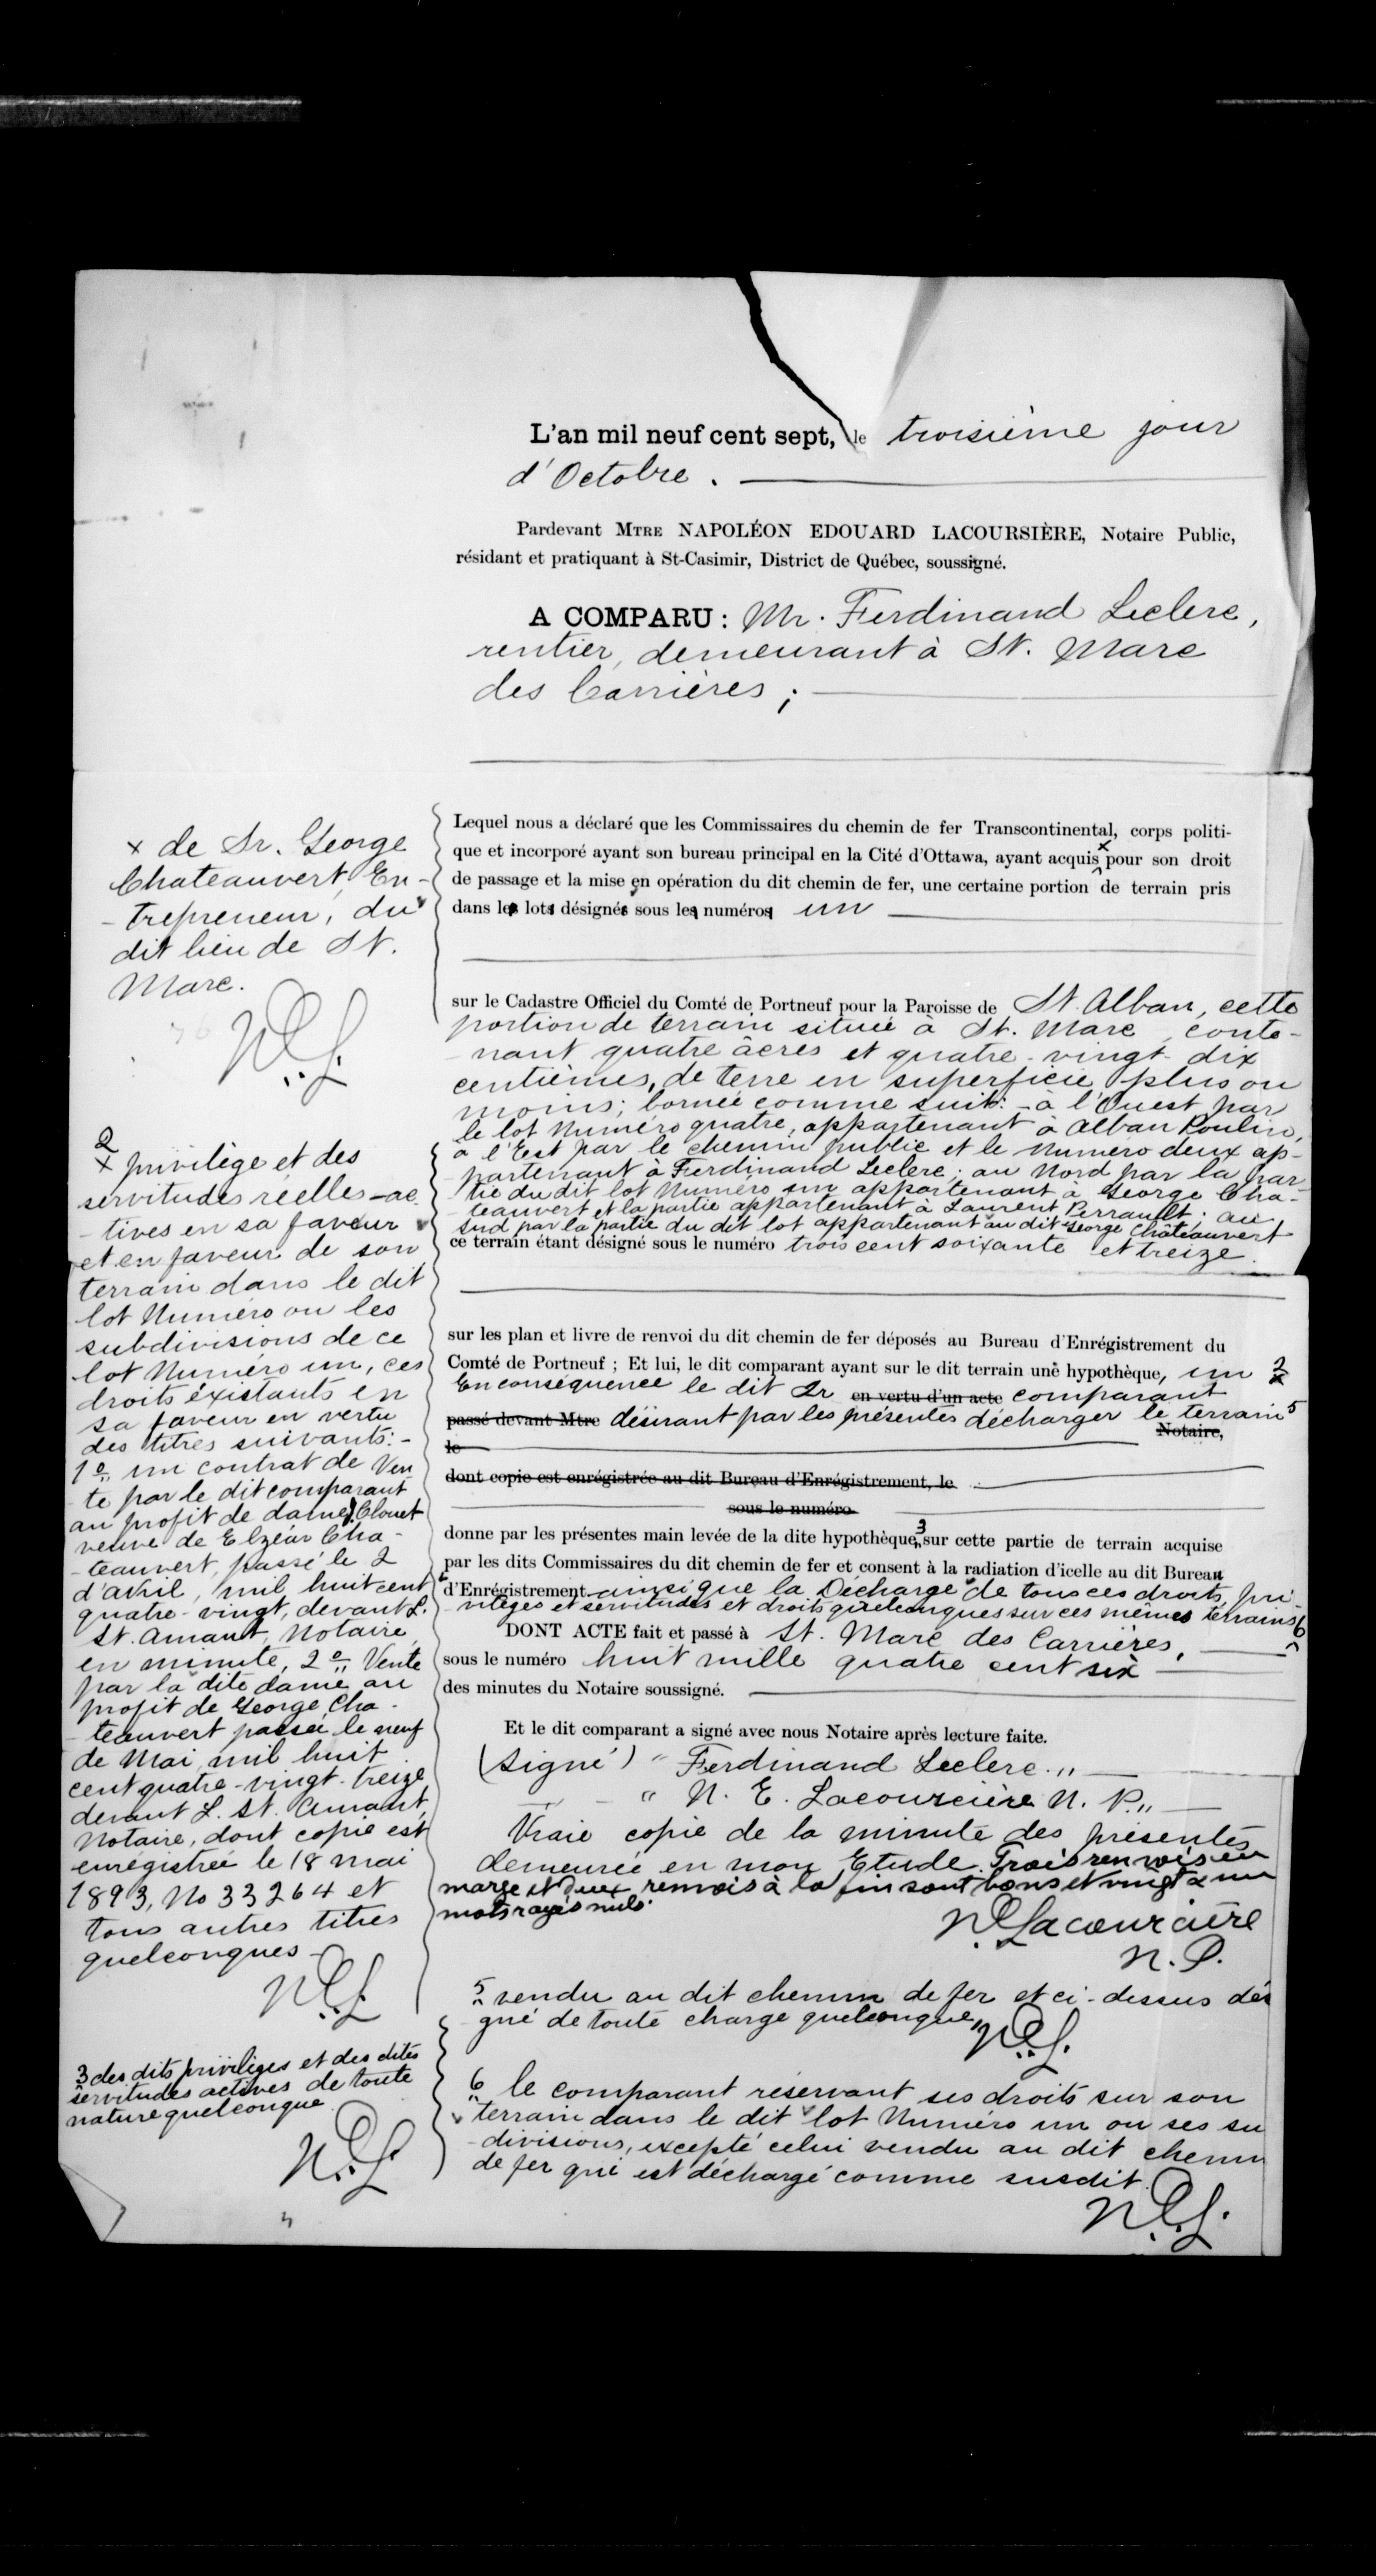 L'an mil neuf cent sept, le troisième jour
d'Octobre.
Pardevant MTRE NAPOLÉON EDOUARD LACOURSIÈRE, Notaire Public,
résidant et pratiquant à St-Casimir, District de Québec, soussigné.
A COMPARU: Mr. Ferdinand Leclerc,
rentier, demeurant à St. Marc
des Carrières;
Lequel nous a déclaré que les Commissaires du chemin de fer Transcontinental, corps politi-
que et incorporé ayant son bureau principal en la Cité d'Ottawa, ayant acquis x pour son droit
de passage et la mise en opération du dit chemin de fer, une certaine portion de terrain pris
dans le lot désigné sous le numéro un
sur le Cadastre Officiel du Comté de Portneuf pour la Paroisse de St. Alban, cette
portion de terrain située à St. Marc, conte-
nant quatre âcres et quatre-vingt-dix
centièmes, de terre en superficie plus ou
moins; bornée comme suit:- à l'Ouest par
le lot Numéro quatre, appartenant à Alban Poulin,
à l'Est par le chemin public et le Numéro deux ap-
partenant à Ferdinand Leclerc; au Nord par la par-
tie du dit lot Numéro un appartenant à George Cha-
teauvert et la partie appartenant à Laurent Perrault; au
sud par la partie du dit lot appartenant au dit George Châteauvert
ce terrain étant désigné sous le numéro trois cent soixante et treize.
sur les plan et livre de renvoi du dit chemin de fer déposés au Bureau d'Enrégistrement du
Comté de Portneuf; Et lui, le dit comparant ayant sur le dit terrain une hypothèque, un 2 x
En conséquence le dit Sr en vertu d'un acte comparant
passé devant Mtre désirant par les présentes décharger le terrain 5
Notaire,
le
dont copie est enrégistrée au dit Bureau d'Enrégistrement, le
sous le numéro
donne par les présentes main levée de la dite hypothèque, 3 sur cette partie de terrain acquise
par les dits Commissaires du dit chemin de fer et consent à la radiation d'icelle au dit Bureau
d'Enrégistrement ainsi que la Décharge de tous ces droits, pri-
vilèges et servitudes et droits quelconques sur ces mêmes terrains 6
DONT ACTE fait et passé à St. Marc des Carrières,
sous le numéro huit mille quatre cent six
des minutes du Notaire soussigné.
Et le dit comparant a signé avec nous Notaire après lecture faite.
(signé) " Ferdinand Leclerc."
" N. E. Lacourcière N. P."
Vraie copie de la minute des présentes
demeurée en mon Etude. Trois renvois en
marge et deux renvois à la fin sont bons et vingt & un
mots rayés nuls.
N.E. Lacourcière
N.P.
5 vendu au dit chemin de fer et ci-dessus dési
gné de toute charge quelconque,
N.E.L.
6 le comparant réservant ses droits sur son
terrain dans le dit lot Numéro un ou ses su
divisions, excepté celui vendu au dit chemin
de fer qui est déchargé comme susdit.
N.E.L.
x de Sr. George
Chateauvert, En-
trepreneur, du
dit lieu de St.
Marc.
N.E.L.
2
x privilège et des
servitudes réelles-ac
tives en sa faveur
et en faveur de son
terrain dans le dit
lot Numéro ou les
subdivisions de ce
lot Numéro un, ces
droits éxistants en
sa faveur en vertu
des titres suivants:-
1o un contrat de Ven
te par le dit comparant
au profit de dame J. Clouet
veuve de Elzéar Cha-
teauvert, passé le 2
d'avril, mil huit cent
quatre-vingt, devant L.
St. Amant, Notaire,
en minute, 2o Vente
par la dite dame au
profit de George Cha-
teauvert passée le neuf
de Mai mil huit
cent quatre-vingt-treize,
devant L. St. Amant,
Notaire, dont copie est
enrégistrée le 18 mai
1893, No 33264 et
tous autres titres
quelconques-
N.E.L.
3 des dits privilèges et des dites
servitudes actives de toute
nature quelconque
N.E.L.